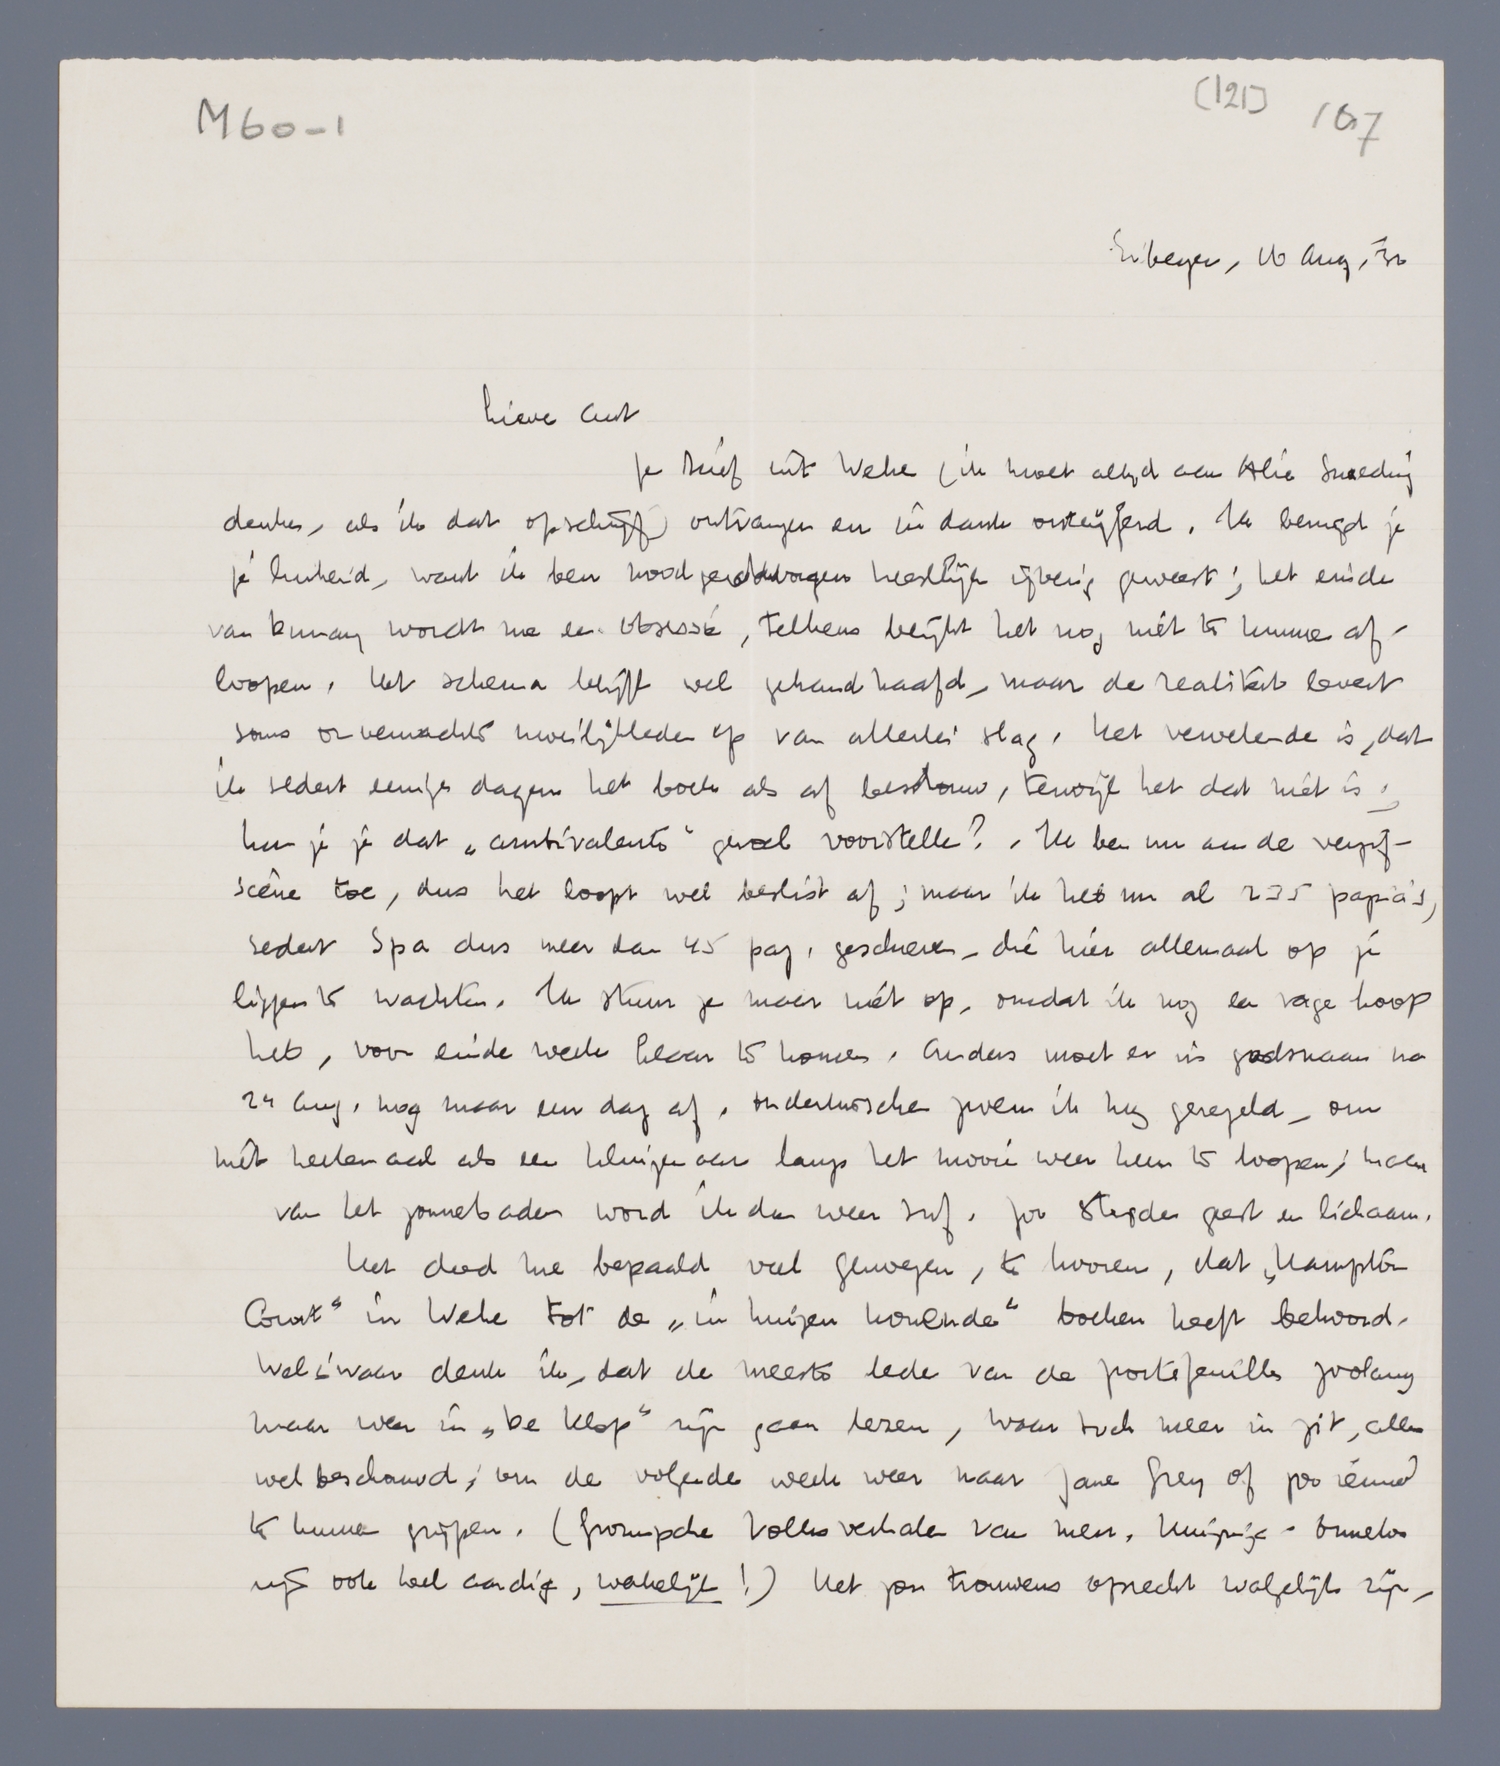 M60-1
(121)
167
Eibergen, 16 Aug, '32
Lieve Ant
Je brief uit Wehe (ik moet altijd aan Alie Smeding
denken, als ik dat opschrijf) ontvangen en in dank ontcijferd. Ik benijd je
je luiheid, want ik ben noodgedwongen heerlijk ijverig geweest; het einde
van Dumay wordt me een obsessie, telkens blijkt het nog niet te kunnen af-
loopen. Het schema blijft wel gehandhaafd, maar de realiteit levert
soms onverwachte moeilijkheden op van allerlei slag. Het vervelende is, dat
ik sedert eenige dagen het boek als af beschouw, terwijl het dat niet is;
kun je je dat „ambivalente" gevoel voorstellen? Ik ben nu aan de vergif-
scène toe, dus het loopt wel beslist af; maar ik heb nu al 235 pagina's,
sedert Spa dus meer dan 45 pag. geschreven, die hier allemaal op je
liggen te wachten. Ik stuur ze maar niet op, omdat ik nog een vage hoop
heb, voor einde week klaar te komen. Anders moet er in godsnaam na
24 Aug. nog maar een dag af. Ondertusschen zwem ik nog geregeld, om
niet heelemaal als een kluizenaar langs het mooie weer heen te loopen; maar
van het zonnebaden word ik dan weer suf. Zoo strijden geest en lichaam.
Het deed me bepaald veel genoegen, te hooren, dat „Hampton
Court" in Wehe tot de „in huizen komende" boeken heeft behoord.
Weliswaar denk ik, dat de meeste leden van de portefeuille zoolang
maar weer in „De Klop" zijn gaan lezen, waar toch meer in zit, alles
wel beschouwd; om de volgende week weer naar Jane Grey of zoo iemand
te kunnen grijpen. (Groningsche Volksverhalen van mevr. Huizenga-Onnekes
zijn ook heel aardig, wakelijk!) Het zou trouwens oprecht walgelijk zijn,